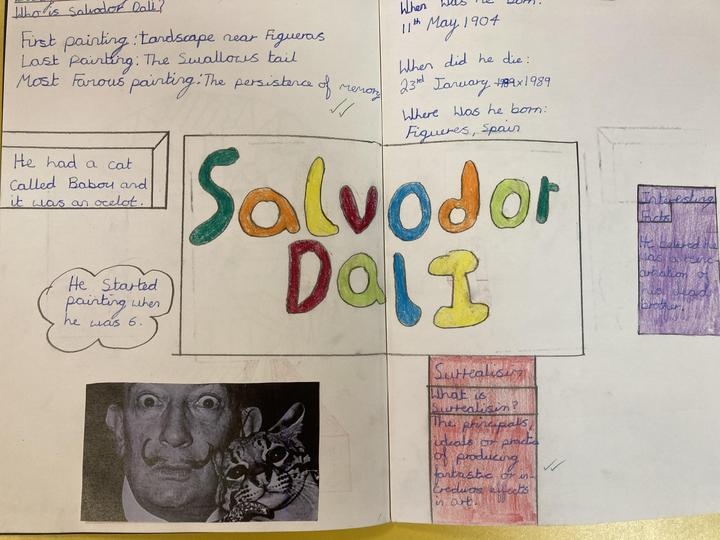 Who is Salvador Dali?
First painting: Landscape near Figueras
Last painting: The Swallows tail
Most Famous painting: The persistence of memory
When was he born:
11th May 1904
When did he die:
23rd January 1989
Where was he born:
Figueres, Spain
He had a cat
called Babou and
it was an ocelot.
Salvodor
Dali
He started
painting when
he was 6.
Interesting
Facts
He believed he
was a reinc
arnation of
his dead
brother.
Surrealism
What is
Surrealism?
The principals,
ideals or practice
of producing
fantastic or in-
credious effects
in art.